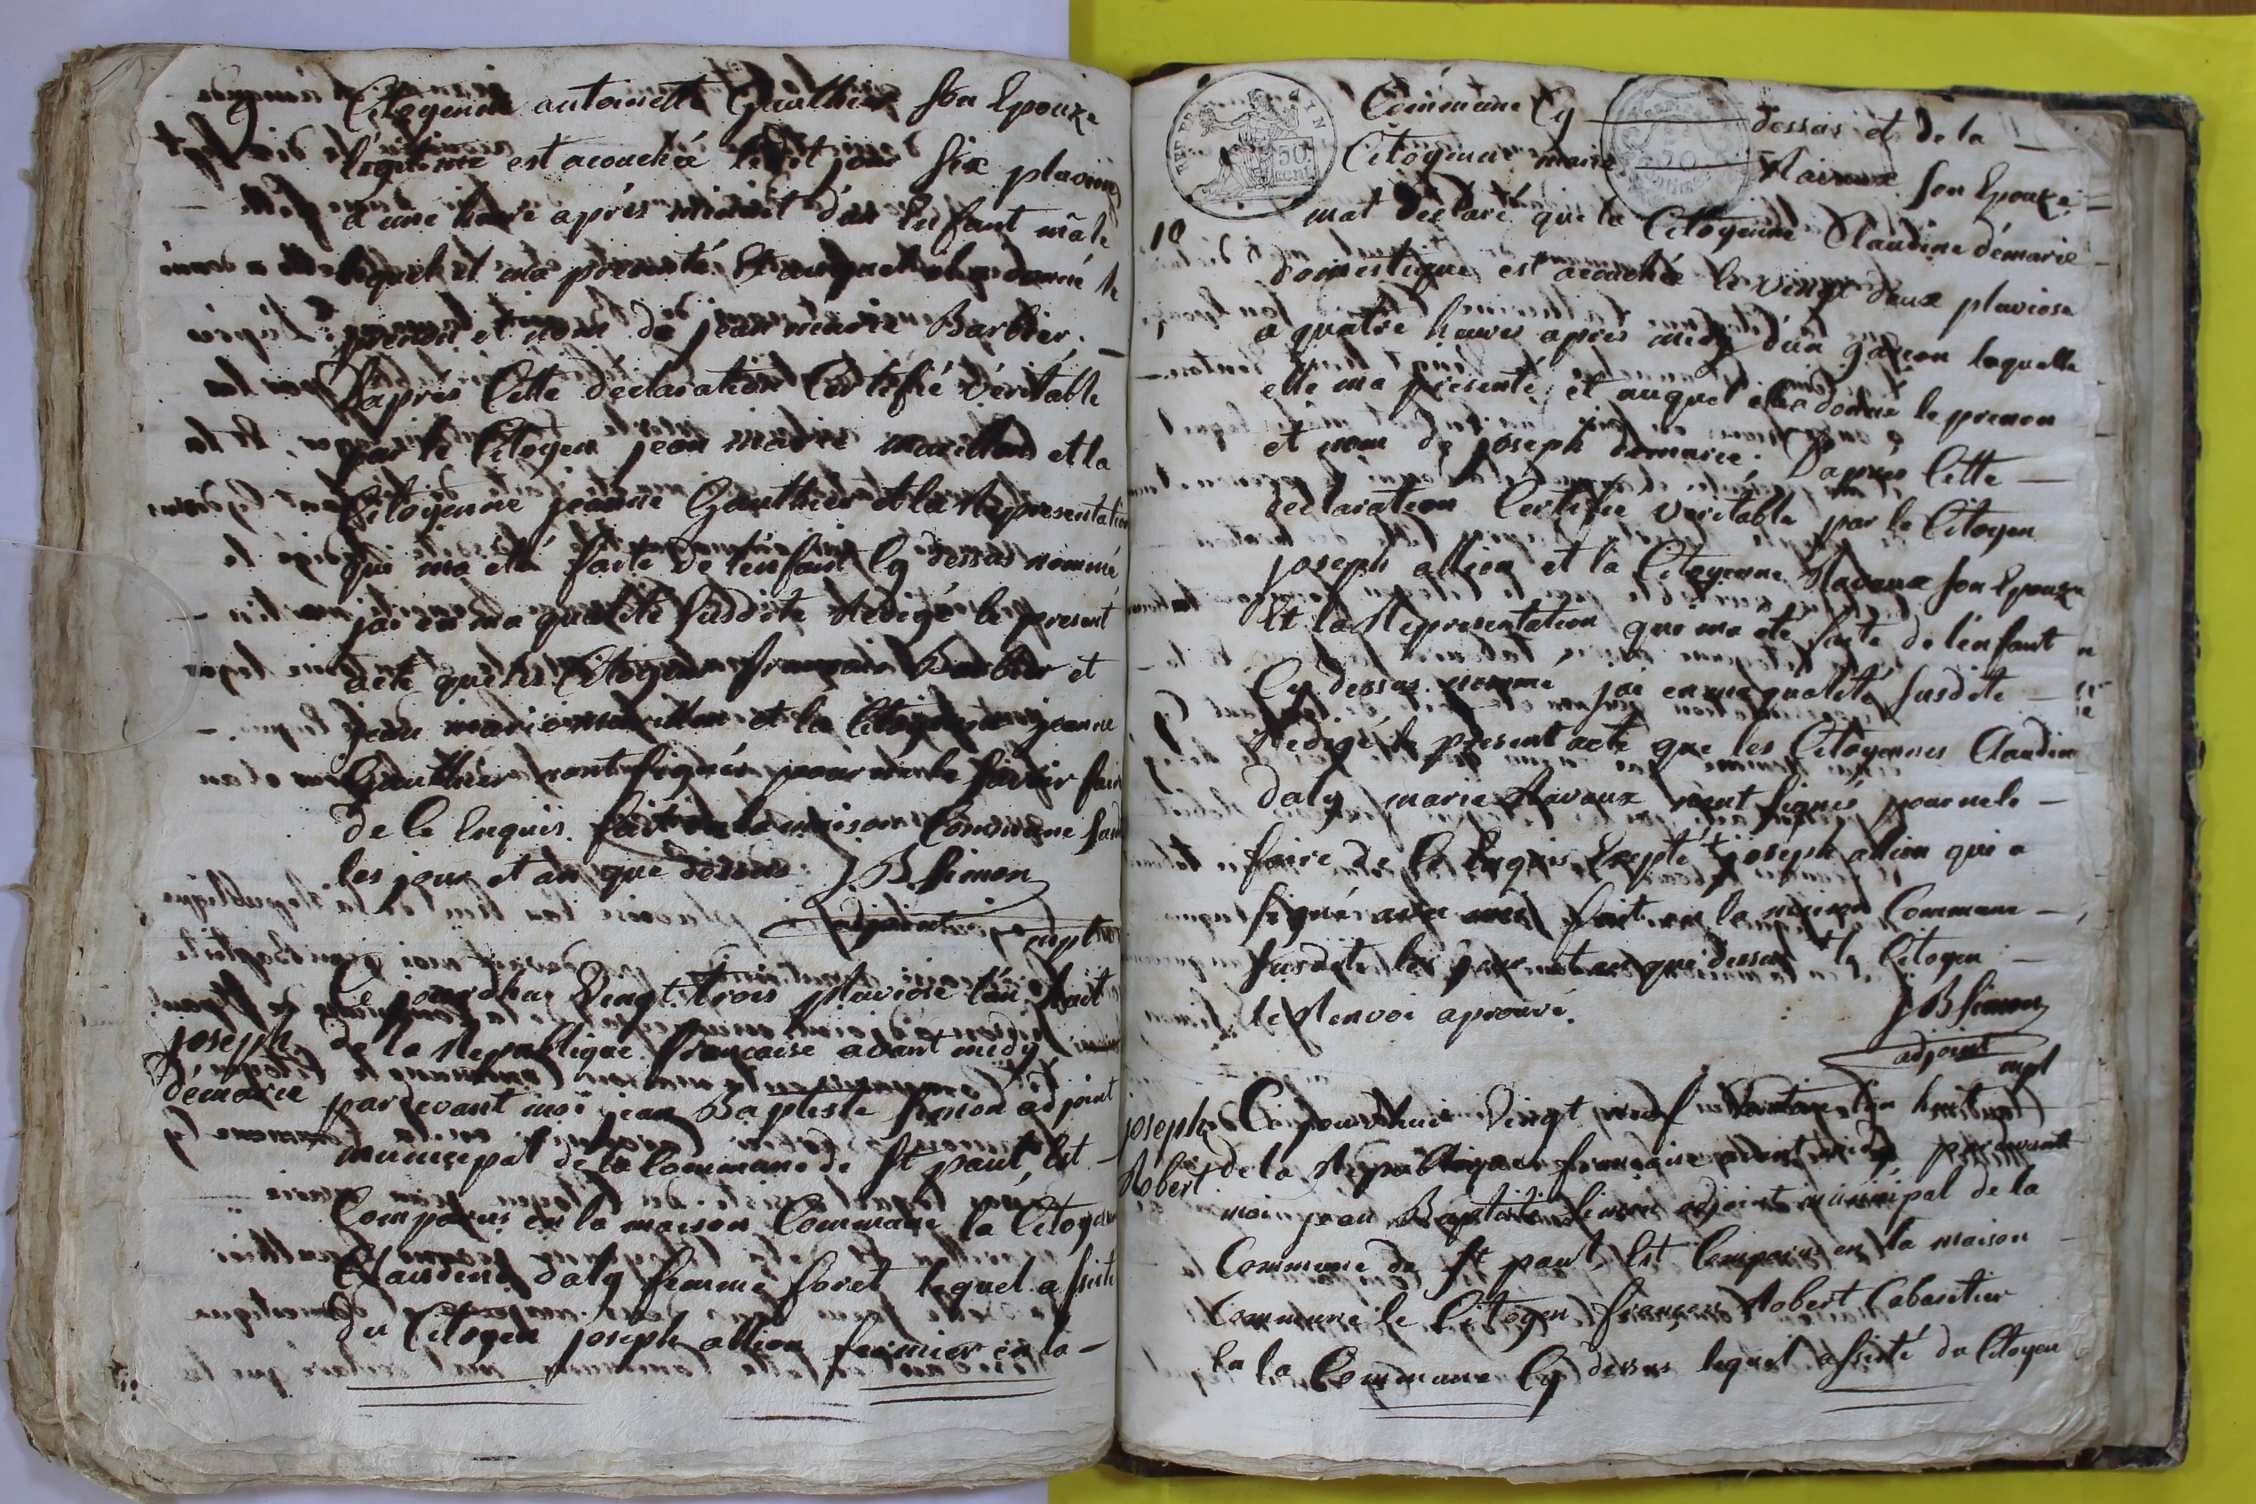 9
Citoyenne antoinette Gauthier son Epouze
légitime est acouchée le dit jour six pluviose
a une heure après minuit d'un Enfant mâle
lequel il m'a présenté Et auquel il a donné le
prenom et nom de jean marie Barbier.
D'après Cette déclaration Certifié Véritable
par le Citoyen jean marie marillon et la
Citoyenne jeanne Gauthier et la Représentation
qui ma été faite de l'enfant Cy dessus nommé
jai en ma qualité susdite Rédigé le présent
acte que les Citoyens françois Barbier et
jean marie marillon et la Citoyenne jeanne
Gauthier n'ont signés pour ne le savoir faire
de le Enquis. fait en la maison Commune susd
les jour et an que dessus J. B. Simon
adjoint mpl
joseph
démarie
Cejourdhui Vingt trois pluviose l'an huit
de la Republique francaise avant midy
pardevant moi jean Baptiste Simon adjoint
municipal de la Commune de St paul, Est
Comparus en la maison Commune la Citoyenne
Claudine daly femme foret lequel a sisté
du Citoyen joseph allion fermier en la
REP FRA
50 cent
Commune Cy dessus et de la
Citoyenne marie Navaux son Epouze
10
mat déclaré que la Citoyenne Claudine démarie
domestique est acouchée le vingt deux pluviose
a quatre heures après midy d'un garçon laquelle
elle ma présenté; et auquel elle a donné le prenom
et nom de joseph demarie. D'après Cette
declaration Certifiée Veritable par le Citoyen
joseph allion et la Citoyenne Navaux son Epouze
Et la Representation que ma été faite de l'enfant
Cy dessus nommé jai en ma qualité susdite
Redigé le présent acte que les Citoyennes Claudine
daly marie Navaux n'ont signés pour ne le
faire de le Enquis Exepté joseph allion qui a
signé avec moi fait en la maison Commune
susdite les jour et an que dessus le Citoyen
le Renvoi aprouvé. J B Simon
adjoint mpl
joseph
Robert
Cejourdhui Vingt neuf l'an huit
de la Republique francaise avant midy pardevant
moi jean Baptiste Simon adjoint municipal de la
Commune de St paul, Est Comparus en la maison
Commune le Citoyen françois Robert Cabaretier
en la Commune Cy dessus lequel assisté du Citoyen